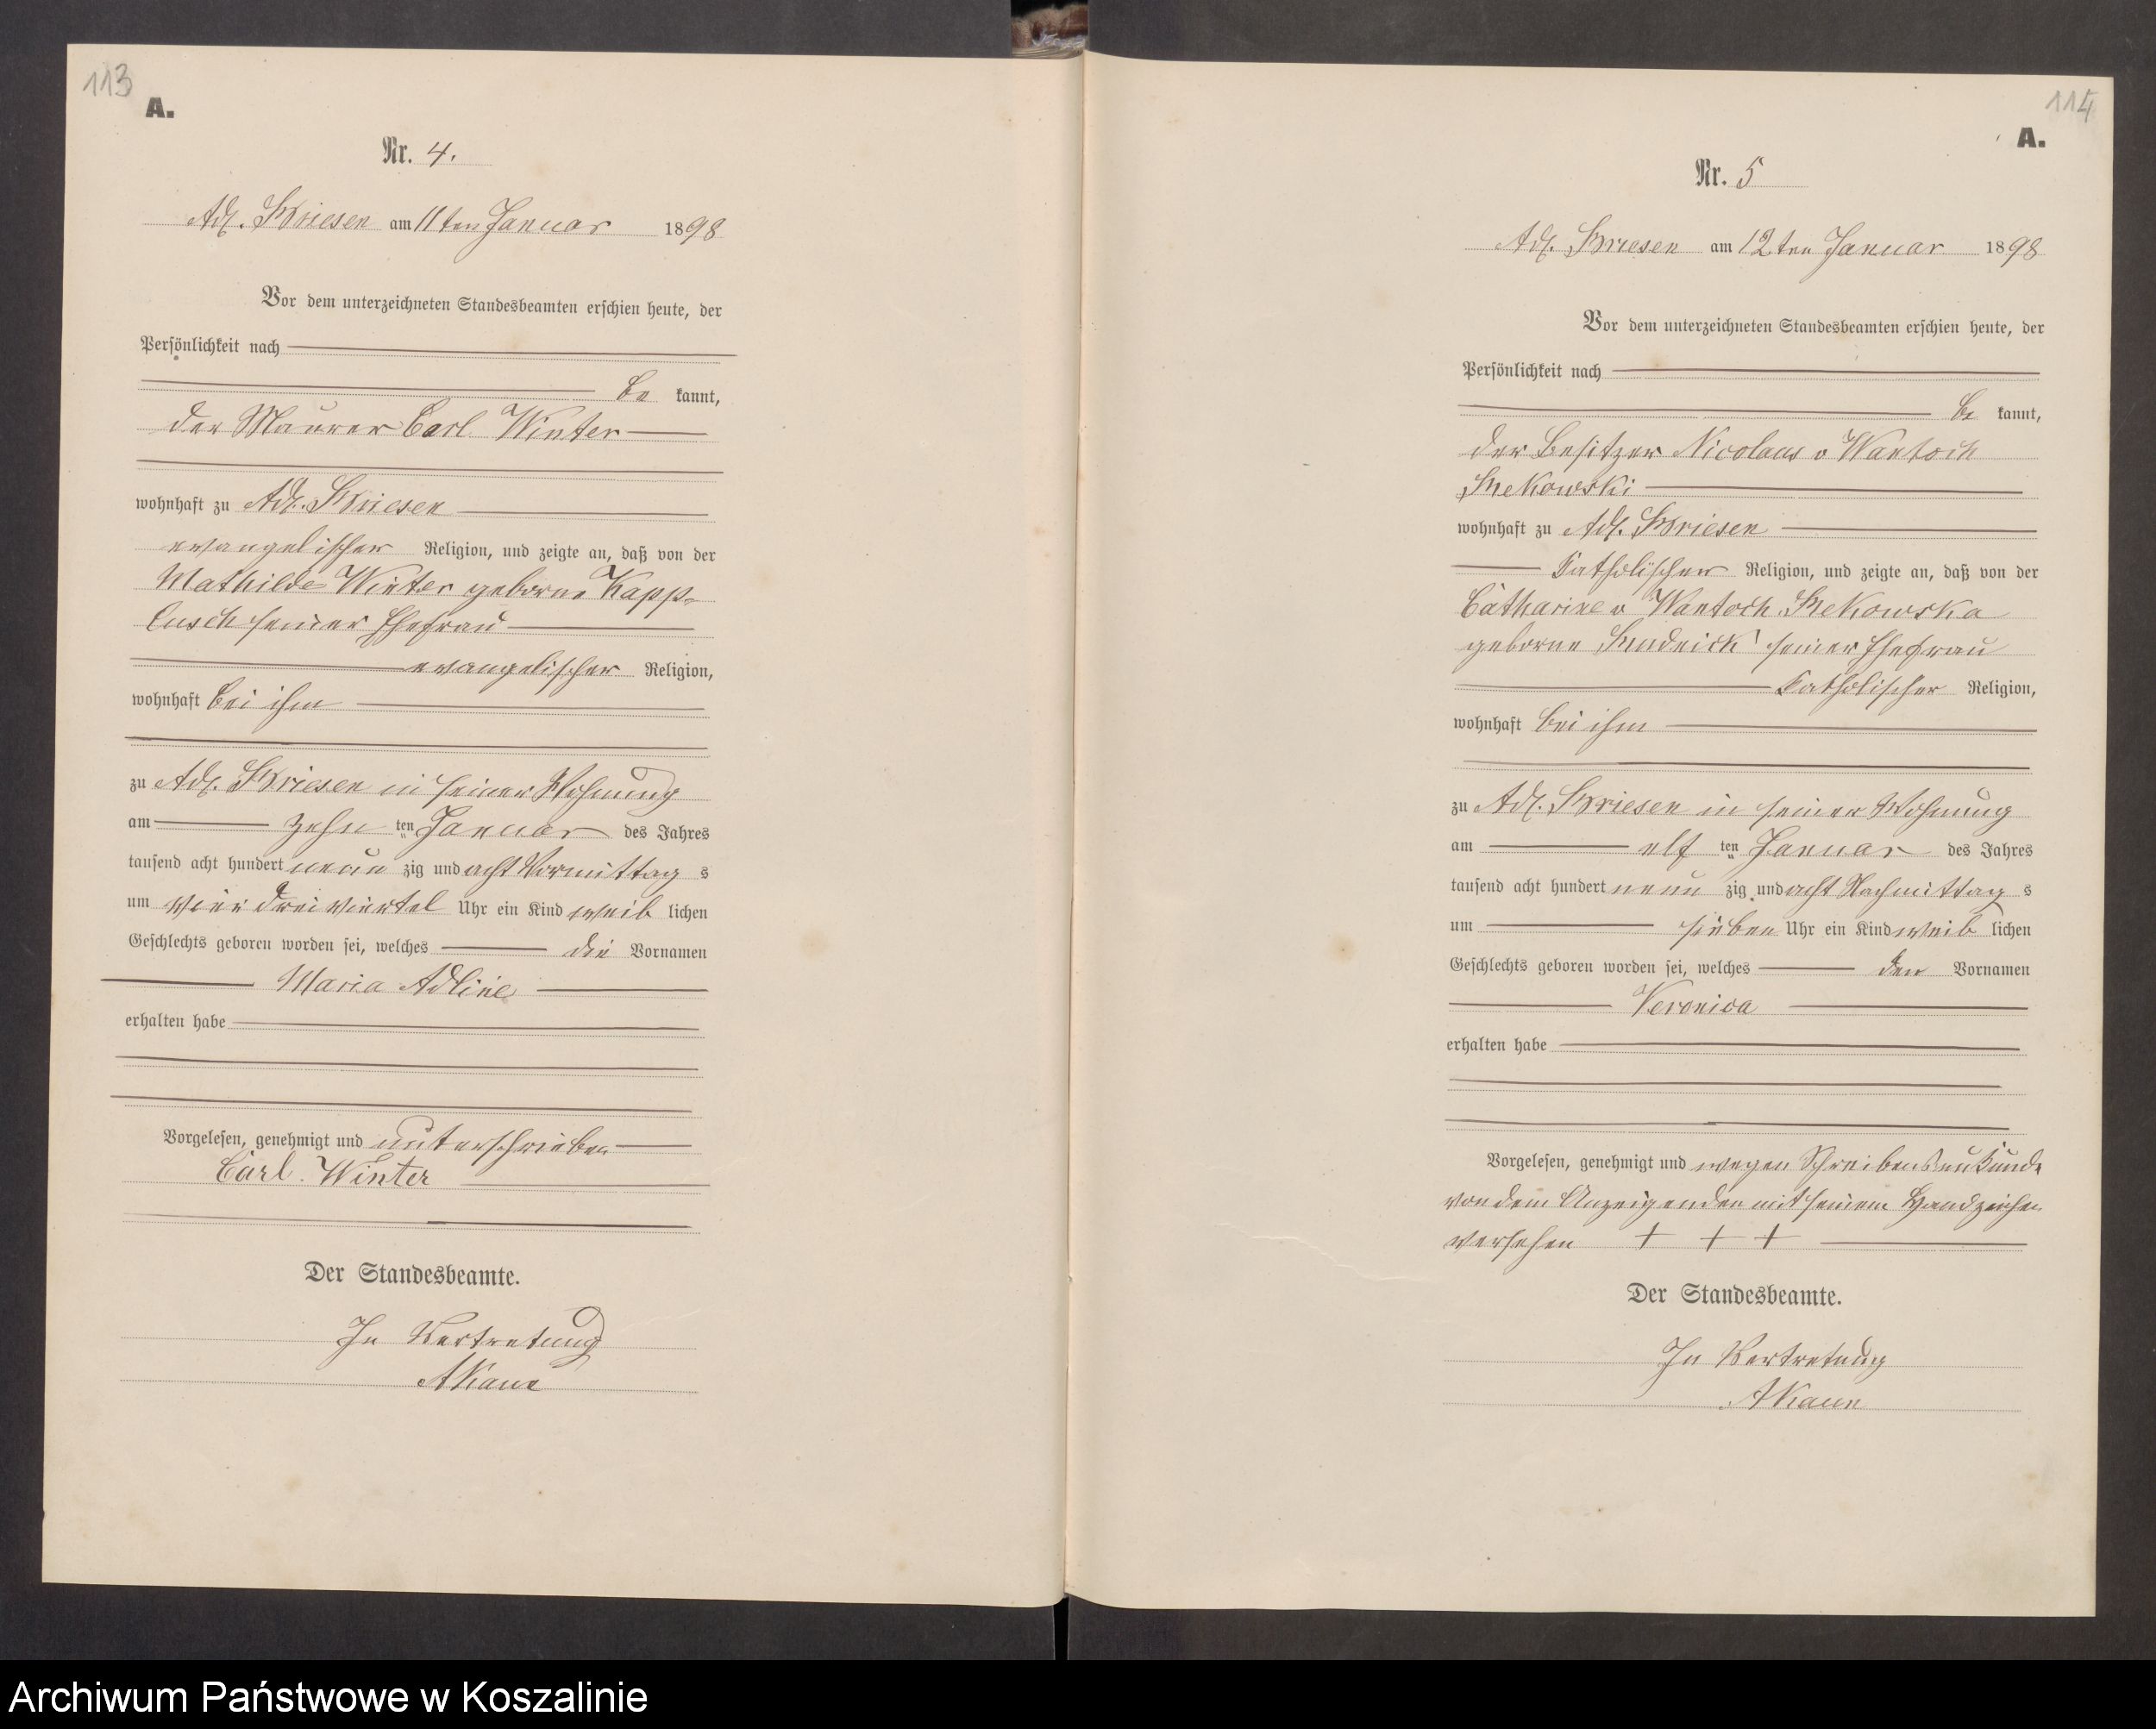 113
A.
Nr. 4.
Adl. Briesen am 11ten Januar 1898
Vor dem unterzeichneten Standesbeamten erschien heute, der
Persönlichkeit nach
be kannt,
der Maurer Carl Winter
wohnhaft zu Adl. Briesen
evangelischer Religion, und zeigte an, daß von der
Mathilde Winter geborne Kapp-
lusch seiner Ehefrau
evangelischer Religion,
wohnhaft bei ihm
zu Adl. Briesen in seiner Wohnung
am zehn ten Januar des Jahres
tausend acht hundert neun zig und acht Vormittag s
um vier dreiviertel Uhr ein Kind weib lichen
Geschlechts geboren worden sei, welches die Vornamen
Maria Adline
erhalten habe
Vorgelesen, genehmigt und unterschrieben
Carl Winter
Der Standesbeamte.
In Vertretung
114
A.
Nr. 5
Adl. Briesen am 12ten Januar 1898
Vor dem unterzeichneten Standesbeamten erschien heute, der
Persönlichkeit nach
be kannt,
der Besitzer Nicolaus v Wantoch
Rekowski
wohnhaft zu Adl. Briesen
katholischer Religion, und zeigte an, daß von der
Catharine v Wantoch Rekowska
geborne seiner Ehefrau
katholischer Religion,
wohnhaft bei ihm
zu Adl. Briesen in seiner Wohnung
am elf ten Januar des Jahres
tausend acht hundert neun zig und acht Nachmittag s
um sieben Uhr ein Kind weib lichen
Geschlechts geboren worden sei, welches den Vornamen
Veronica
erhalten habe
Vorgelesen, genehmigt und wegen Schreibensunkunde
von dem Anzeigenden mit seinem Handzeichen
versehen + + +
Der Standesbeamte.
In Vertretung
Archiwum Państwowe w Koszalinie